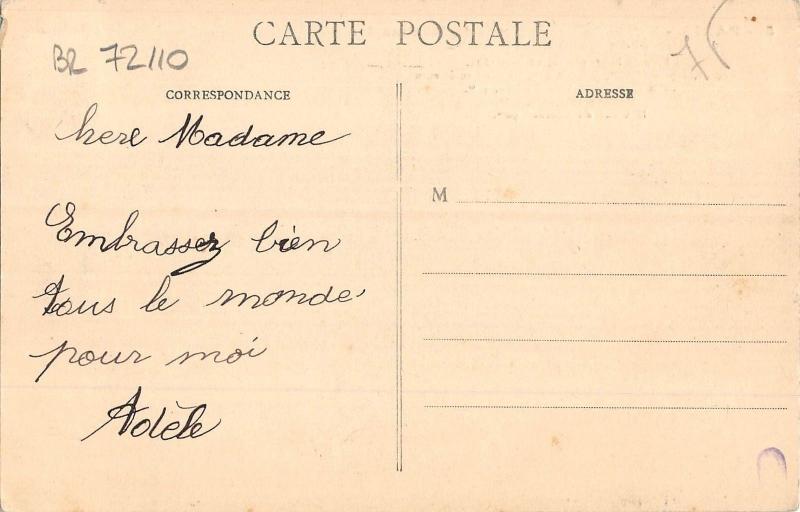 CARTE POSTALE
BR 72110
CORRESPONDANCE
ADRESSE
here Madame
M
Embrassez bien
tous le monde
pour moi
Adèle